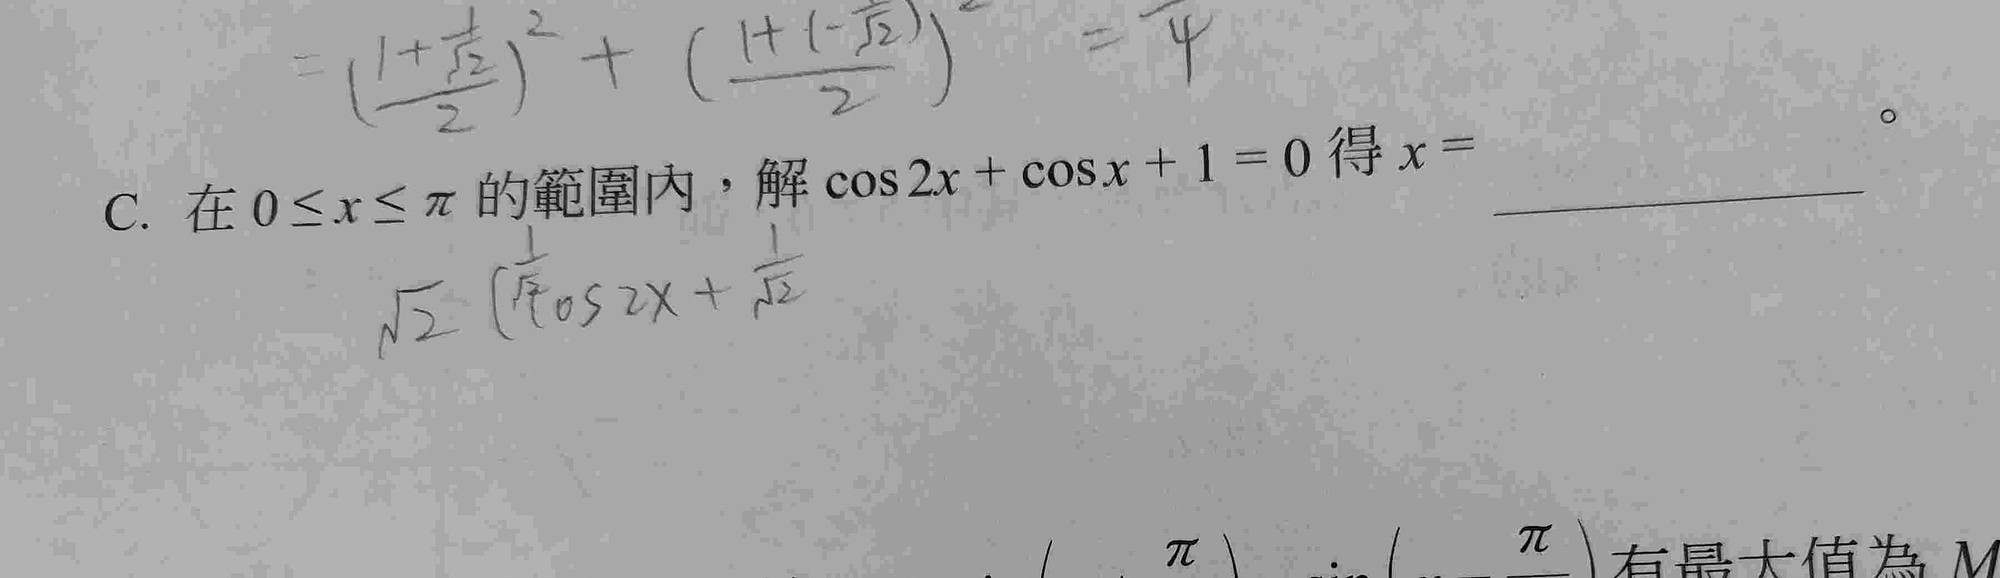 = (\frac{1+\frac{1}{\sqrt{2}}}{2})^2 + (\frac{1+(-\frac{1}{\sqrt{2}})}{2})^2 = \frac{}{4}
C. 在 0 ≤ x ≤ π 的範圍內，解 cos 2x + cos x + 1 = 0 得 x = ________ 。
√2 (\frac{1}{\sqrt{2}} cos 2x + \frac{1}{\sqrt{2}}
π π 有最大值為 M